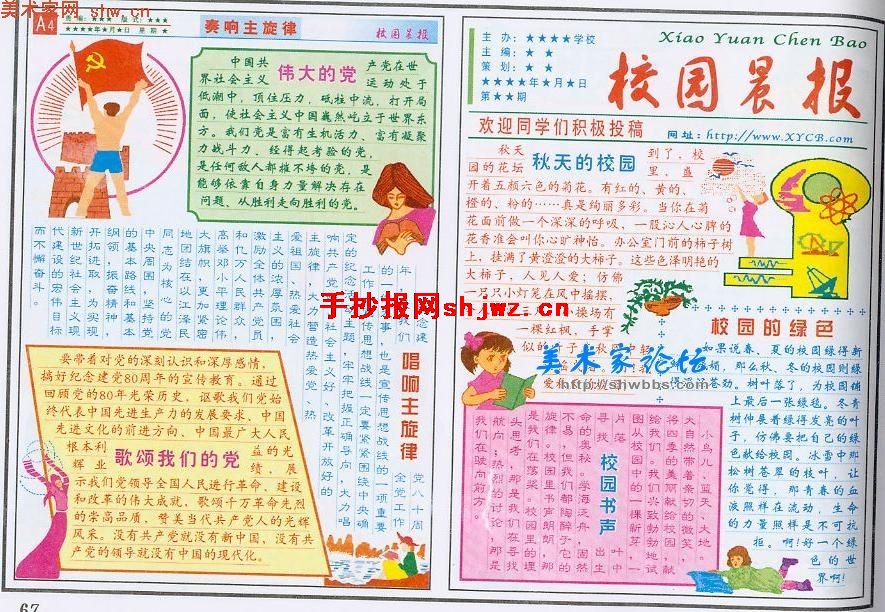 美术家网 shjw.cn
A4
奏响主旋律
校园晨报
中国共产党在世
界社会主义运动处于
伟大的党
低潮中，顶住压力，砥柱中流，打开局
面，使社会主义中国巍然屹立于世界东
方。我们党是富有生机活力、富有凝聚
力战斗力、经得起考验的党，
是任何敌人都摧不垮的党，是
能够依靠自身力量解决存在
问题、从胜利走向胜利的党。
唱响主旋律
党八十周
全党工作
的一件大事，也是宣传思想战线的一项重要
工作。宣传思想战线一定要紧紧围绕中央确
定的纪念主题，牢牢把握正确导向，大力唱
响共产党好、社会主义好、改革开放好的
主旋律，大力营造热爱党、热
爱祖国、热爱社会
主义的浓厚氛围，
激励全体共产党员
和亿万人民群众，
高举邓小平理论伟
大旗帜，更加紧密
地团结在以江泽民
同志为核心的党
中央周围，坚持党
的基本路线和基本
纲领，振奋精神，
开拓进取，为实现
新世纪社会主义现
代建设的宏伟目标
而不懈奋斗。
要带着对党的深刻认识和深厚感情，
搞好纪念建党80周年的宣传教育。通过
回顾党的80年光荣历史，讴歌我们党始
终代表中国先进生产力的发展要求、中国
先进文化的前进方向、中国最广大人民
根本利益的光
辉业绩，展
歌颂我们的党
示我们党领导全国人民进行革命、建设
和改革的伟大成就，歌颂千万革命先烈
的崇高品质，赞美当代共产党人的光辉
风采。没有共产党就没有新中国，没有共
产党的领导就没有中国的现代化。
67
主办：★★★★学校
主编：★★
策划：★★
★★★★年★月★日
第★★期
Xiao Yuan Chen Bao
校园晨报
欢迎同学们积极投稿
网址：http://www.XYCB.com
秋天的校园
秋天到了，校
园的花坛里，盛
开着五颜六色的菊花。有红的、黄的、
橙的、粉的……真是绚丽多彩。当你在菊
花面前做一个深深的呼吸，一股沁人心脾的
花香准会叫你心旷神怡。办公室门前的柿子树
上，挂满了黄澄澄的大柿子。这些色泽明艳的
大柿子，人见人爱；仿佛
一只只小灯笼在风中摇摆，
操场有
一棵红枫，手掌
手抄报网shjwz.cn
美术家论坛
http://shwbbs.com
校园的绿色
如果说春、夏的校园绿得新
那么秋、冬的校园则绿
得深沉苍劲。树叶落了，为校园铺
上最后一张绿毯。冬青
树伸展着绿得发亮的叶
子，仿佛要把自己的绿
色献给校园。冰雪中那
松树苍翠的枝叶，让
你觉得，那青春的血
液照样在流动，生命
的力量照样是不可抗
拒。啊！好一个绿
色的世
界啊！
校园书声
小鸟儿、蓝天、大地，
大自然带着亲切的微笑，
将四季的美丽献给校园，献
给我们。我们兴致勃勃地试
图从校园中的一棵新芽，一
片落叶中
寻找出生
命的奥秘。学海泛舟，固然
不易，但我们都陶醉于它的
旋律。校园里的
是我们。在落桨。
头思考，那是我们在寻找
航向；热烈的讨论，那是
我们在驶向前方。